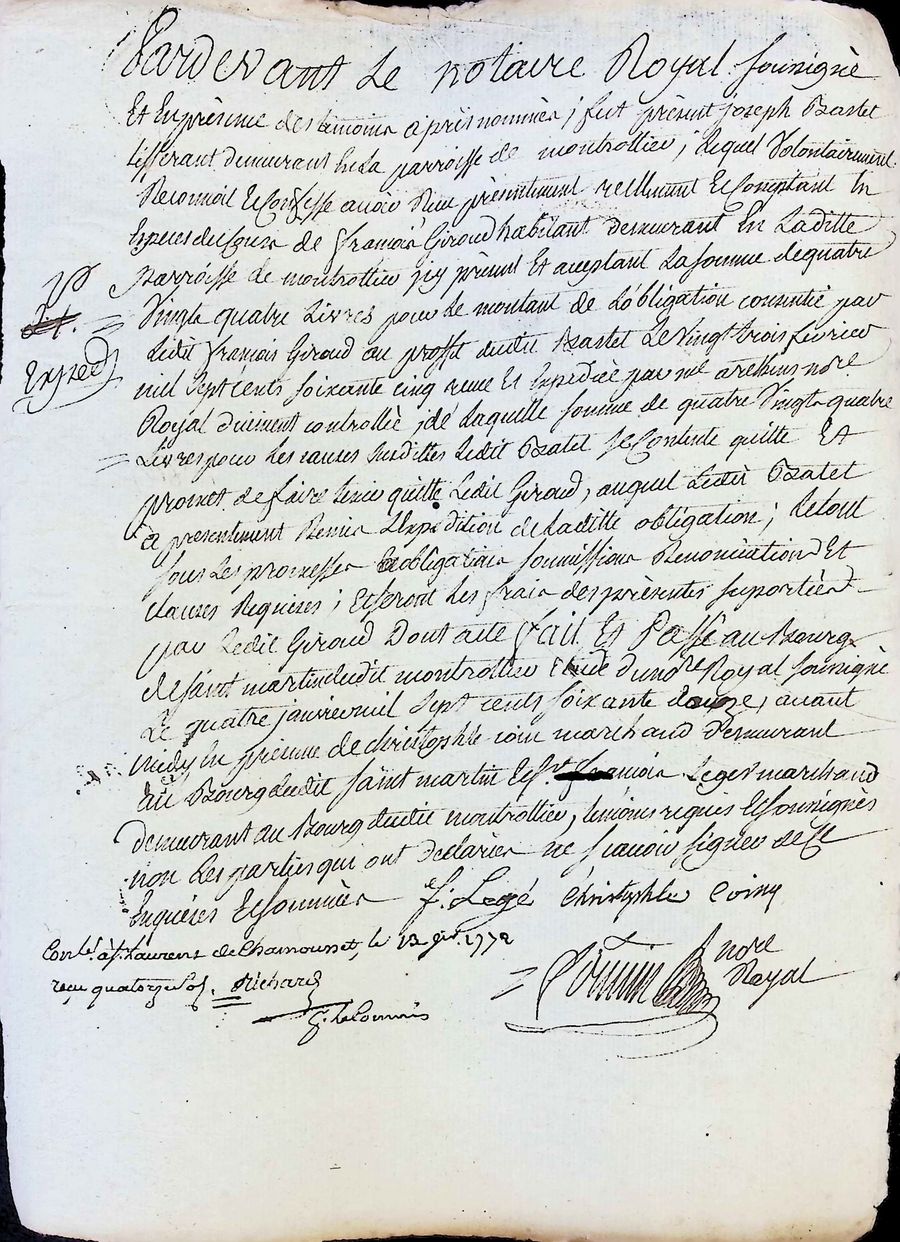 Pardevant Le notaire Royal soussigné
Et En présence des temoins apprès nommés ; fut présent joseph Batet
tisserant demeurant En La parroisse de montrottier ; lequel Volontairement
Reconnoit Et Confesse avoir Reçu présentement reellement Et Comptant En
Especes du Cours de françois Giroud habitant demeurant En Laditte
parroisse de montrottier icy présent Et acceptant La somme de quatre
Vingts quatre Livres pour Le montant de L'obligation consentie par
Ledit françois Giroud au proffit dudit Batet Le Vingt trois fevrier
mil Sept cents soixante cinq reçue Et Expediée par me notre
Royal duement controllée ; de Laquelle somme de quatre Vingts quatre
Livres pour Les causes susdittes Ledit Batet se Contente quitte Et
promet de faire tenir quitte Ledit Giroud, auquel Ledit Batet
a presentement Remis L'Expedition de Laditte obligation ; Le tout
sous Les promesses obligations soumissions Renonciations Et
clauses Requises ; Et seront Les frais des présentes suportés
par Ledit Giroud Dont acte fait Et Passé au Bourg
de saint martin dudit montrottier Etude du nore Royal soussigné
Le quatre janvier mil sept cents soixante douze, avant
midy En présence de christophle coin marchand demeurant
au Bourg dudit saint martin Et sr. françois Leger marchand
demeurant au Bourg dudit montrottier, témoins requis Et soussignés
non Les parties qui ont declarées ne sçavoir signer de ce
Enquises Et sommées f. Legé Christophle Coing
nore
Royal
jp
Exped
Conlé. à st. Laurent de Chamousset, le 13 jer. 1772
reçu quatorze sols. Richard